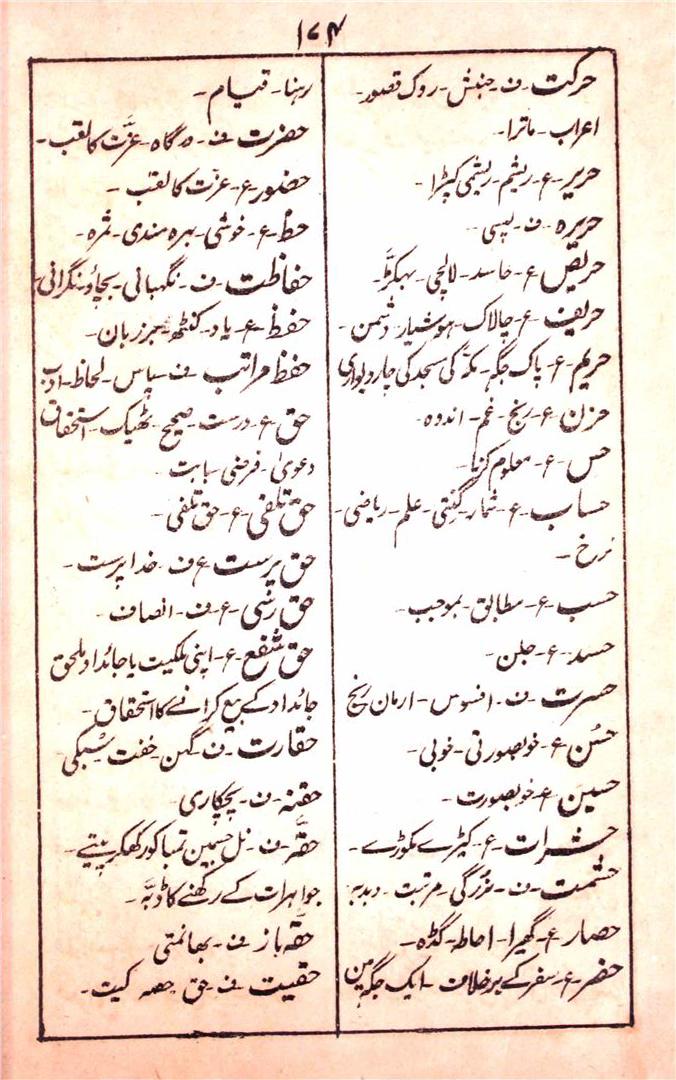 ۱۷۴
حرکت۔ ف۔ جنبش۔ روک قصور۔
اعراب۔ ماترا۔
حریر۔ ع۔ ریشم۔ ریشمی کپڑا۔
حریرہ۔ ف۔ لپسی۔
حریص۔ ع۔ حاسد۔ لالچی۔
حریف۔ ع۔ چالاک۔ ہوشیار۔ دشمن۔
حریم۔ ع۔ پاک جگہ۔ مکہ کی مسجد کی چاردیواری
حزن۔ ع۔ رنج۔ غم۔ اندوہ۔
حس۔ ع۔ معلوم کرنا۔
حساب۔ ع۔ شمار۔ گنتی۔ علم۔ ریاضی۔
نرخ۔
حسب۔ ع۔ مطابق۔ بموجب۔
حسد۔ ع۔ جلن۔
حسرت۔ ف۔ افسوس۔ ارمان رنج
حُسن۔ ع۔ خوبصورتی۔ خوبی۔
حسین۔ ع۔ خوبصورت۔
حشرات۔ ع۔ کیڑے مکوڑے۔
حشمت۔ ف۔ بزرگی۔ مرتبت۔ دبدبہ
حصار۔ ع۔ گھیرا۔ احاطہ۔ گڈہ۔
حضر۔ ع۔ سفر کے برخلاف۔ ایک جگہ میں
رہنا۔ قیام۔
حضرت۔ ف۔ درگاہ۔ عزّت کا لقب۔
حضور۔ ع۔ عزت کا لقب۔
حظ۔ ع۔ خوشی۔ بہرہ مندی۔ ثمرہ۔
حفاظت۔ ف۔ نگہبانی۔ بچاؤ۔ نگرانی۔
حفظ۔ ع۔ یاد۔ کنٹھ۔ برزبان۔
حفظ مراتب۔ ف۔ پاس۔ لحاظ۔ ادب
حق۔ ع۔ درست۔ صحیح۔ ٹھیک۔ استحقاق
دعویٰ۔ فرضی۔ بابت۔
حق تلفی۔ ع۔ حق تلفی۔
حق پرست۔ ع ف۔ خدا پرست۔
حق رسی۔ ع۔ ف۔ انصاف۔
حق شفع۔ ع۔ اپنی ملکیت یا جائداد ملحق
جائداد کے بیع کرانے کا استحقاق۔
حقارت۔ ف۔ گھن۔ خفت۔ سُبکی۔
حقنہ۔ ف۔ پچکاری۔
حقّہ۔ ف۔ نل جسمین تمباکو رکھکر پیتے۔
جواہرات کے رکھنے کا ڈبّہ۔
حقّہ باز۔ ف۔ بھانمتی
حقیت۔ ف۔ حق۔ حصہ۔